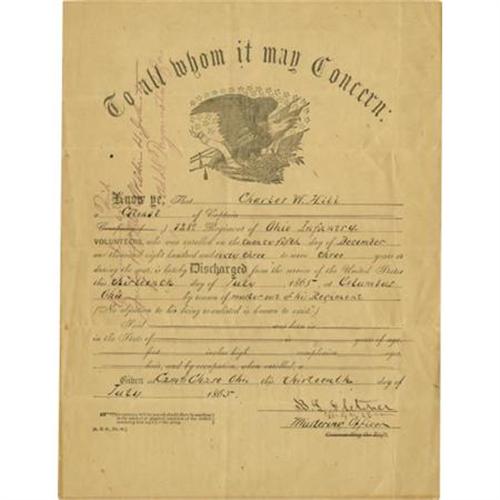 To all whom it may Concern:
Know ye, That Charles W. Hill
a Colonel of Captain
) 128th Regiment of Ohio Infantry
VOLUNTEERS, who was enrolled on the twenty fifth day of December
one thousand eight hundred and sixty three to serve three years or
during the war, is hereby Discharged from the service of the United States
this thirteenth day of July 1865 at Columbus
Ohio by reason of muster out of his Regiment
(No objection to his being re-enlisted is known to exist.)
Said was born in
in the State of years of age,
feet inches high, complexion, eyes,
hair, and by occupation, when enrolled, a
Given at Camp Chase Ohio this thirteenth day of
July 1865.
Mustering Officer
Commanding the Reg't.